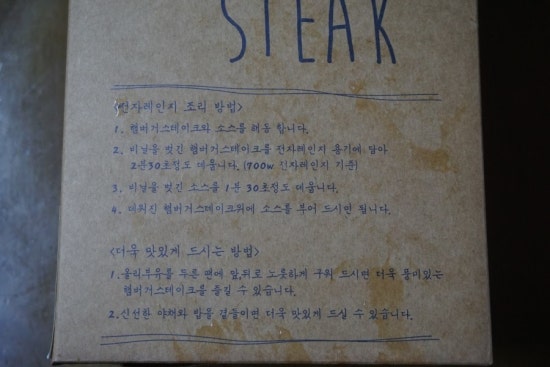 STEAK
<전자레인지 조리 방법>
1. 햄버거스테이크와 소스를 해동 합니다.
2. 비닐을 벗긴 햄버거스테이크를 전자레인지 용기에 담아
2분30초정도 데웁니다. (700w 전자레인지 기준)
3. 비닐을 벗긴 소스을 1분 30초정도 데웁니다.
4. 데워진 햄버거스테이크위에 소스를 부어 드시면 됩니다.
<더욱 맛있게 드시는 방법>
1. 올리부유를 두른 팬에 앞,뒤로 노릇하게 구워 드시면 더욱 풍미있는
햄버거스테이크를 즐길 수 있습니다.
2. 신선한 야채와 밥을 곁들이면 더욱 맛있게 드실 수 있습니다.